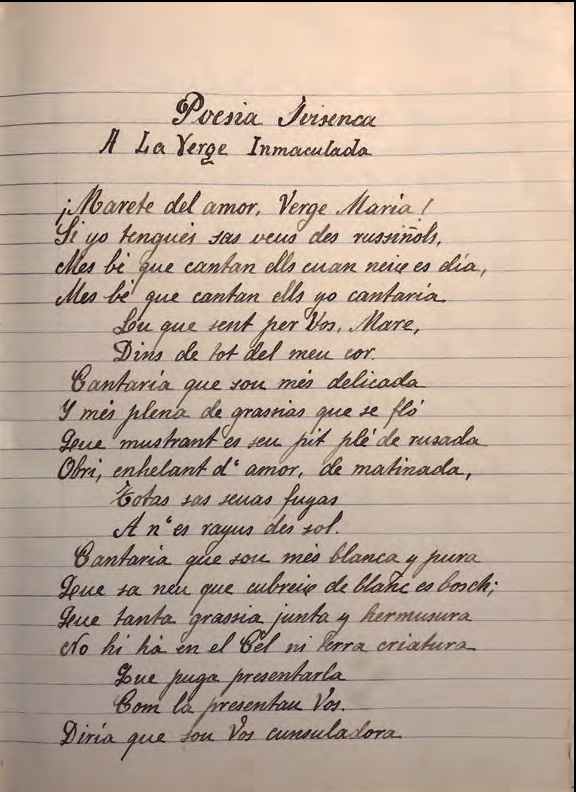 Poesia Ivisenca
A La Verge Inmaculada
¡Marete del amor, Verge María!
Si yo tengués sas veus des russiñols,
Mes bé que cantan ells cuan neix es día,
Mes bé que cantan ells yo cantaría
Lu que sent per Vos, Mare,
Dins de tot del meu cor.
Cantaría que sou més delicada
Y més plena de grassias que se fló
Que mustrant es seu pit plé de rusada
Obri, enhelant d'amor, de matinada,
Totas sas seuas fuyas
A n'es rayus des sol.
Cantaria que sou més blanca y pura
Que sa neu que cubreix de blanc es bosch;
Que tanta grassia junta y hermusura
No hi há en el Cél ni terra criatura
Que puga presentarla
Com la presentau Vos.
Diría que sou Vos cunsuladora